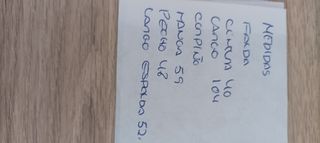 MEDIDAS
FALDA
CINTURA 40
LARGO 104
CORPIÑO
MANGA 59
PECHO 48
LARGO ESPALDA 52.